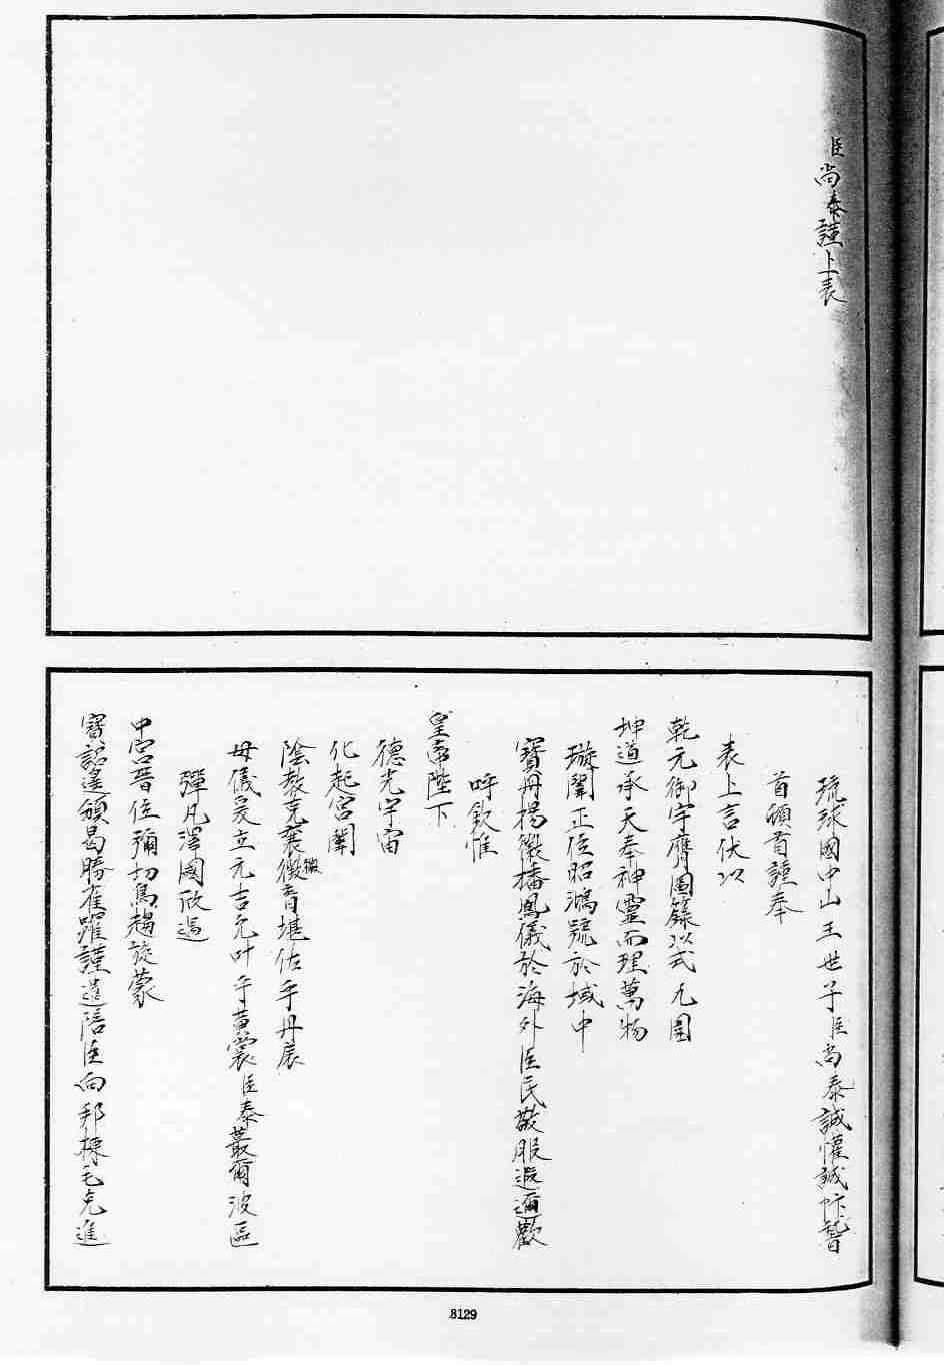 臣尚泰謹上表
琉球國中山王世子臣尚泰誠懽誠忭稽
首頓首謹奉
表上言伏以
乾元御宇膺圖籙以式九圍
坤道承天奉神靈而理萬物
璇闈正位昭鴻號於域中
寶冊揚徽播鳳儀於海外臣民敬服遐邇歡
呼欽惟
皇帝陛下
德光宇宙
化起宮闈
陰教克襄徽徽音堪佐乎丹扆
母儀爰立元吉允叶乎黃裳臣泰蕞爾波區
彈凡澤國欣逢
中宮晉位彌切鳥趨旋蒙
寶詔遙頒曷勝雀躍謹遣陪臣向邦棟毛克進
8129